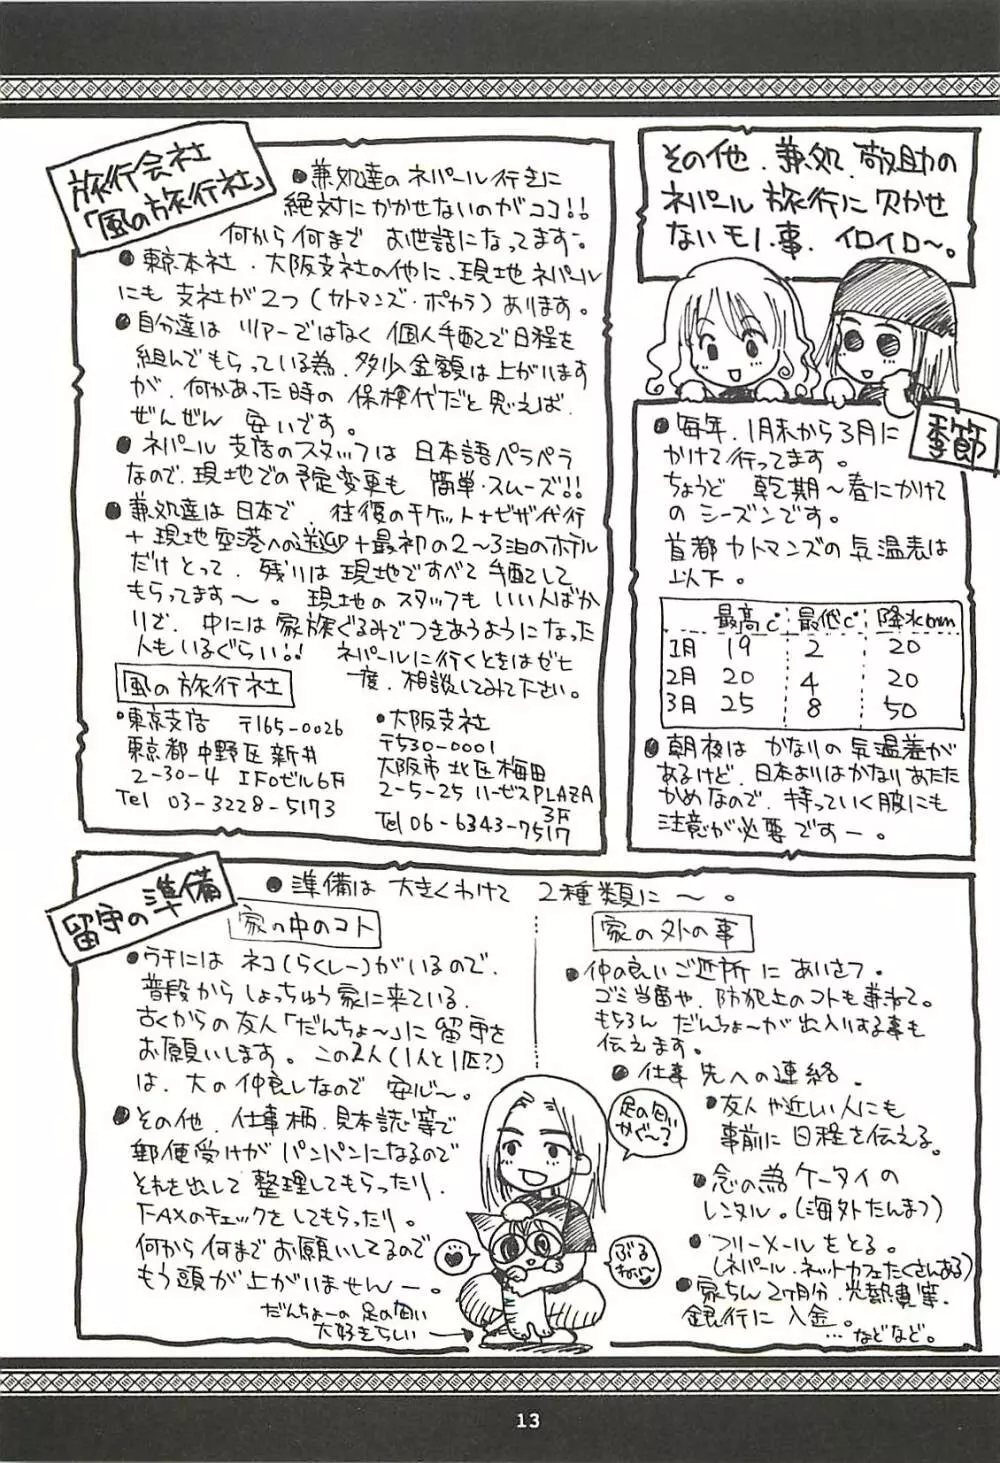 その他、兼処、敬助の
ネパール旅行に欠かせ
ないモノ、事、イロイロ〜。
旅行会社
「風の旅行社」
●兼処達のネパール行きに
絶対にかかせないのがココ!!
何から何まで お世話になってます。
●東京本社、大阪支社の他に、現地ネパール
にも支社が2つ(カトマンズ・ポカラ)あります。
●自分達は ツアーではなく 個人手配で日程を
組んでもらっている為、多少金額は上がります
が、何かあった時の保検代だと思えば、
ぜんぜん 安いです。
●ネパール支店のスタッフは 日本語ペラペラ
なので、現地での予定変更も 簡単・スムーズ!!
●兼処達は日本で、往復のチケット+ビザ代行
+現地空港への送迎+最初の2〜3泊のホテル
だけとって、残りは現地ですべて手配して
もらってます〜。現地のスタッフもいい人ばか
りで、中には家族ぐるみでつきあうようになった
人もいるぐらい!! ネパールに行くときはゼヒ
一度、相談してみて下さい。
風の旅行社
・東京支店 〒165-0026
東京都中野区新井
2-30-4 IFOビル6F
Tel 03-3228-5173
・大阪支社
〒530-0001
大阪市北区梅田
2-5-25 ハービスPLAZA
3F
Tel 06-6343-7517
季節
●毎年、1月末から3月に
かけて行ってます。
ちょうど 乾期〜春にかけて
の シーズンです。
首都カトマンズの気温表は
以下。
最高℃ 最低℃ 降水mm
1月 19 2 20
2月 20 4 20
3月 25 8 50
●朝夜は かなりの気温差が
あるけど、日本よりはかなりあたた
かめなので、持っていく服にも
注意が必要ですー。
留守の準備
●準備は 大きくわけて 2種類に〜。
家の中のコト
●ウチには ネコ(らくしー)がいるので、
普段からしょっちゅう家に来ている、
古くからの友人「だんちょ〜」に留守を
お願いします。この2人(1人と1匹?)
は、大の仲良しなので 安心〜。
●その他、仕事柄、見本誌等で
郵便受けが パンパンになるので
それを出して 整理してもらったり、
FAXのチェックをしてもらったり。
何から何までお願いしてるので
もう頭が上がいませんー。
だんちょーの足の匂い
大好きらしい
足の匂い
かぐ〜?
ぶる
ねい〜
家の外の事
●仲の良いご近所に あいさつ。
ゴミ当番や、防犯上のコトも兼ねて。
もちろん だんちょ〜が出入りする事も
伝えます。
●仕事先への連絡。
●友人や近しい人にも
事前に 日程を伝える。
●念の為 ケータイの
レンタル。(海外たんまつ)
●フリーメールをとる。
(ネパール、ネットカフェたくさんある)
●家ちん2ヶ月分、光熱費等、
銀行に入金。
…などなど。
13